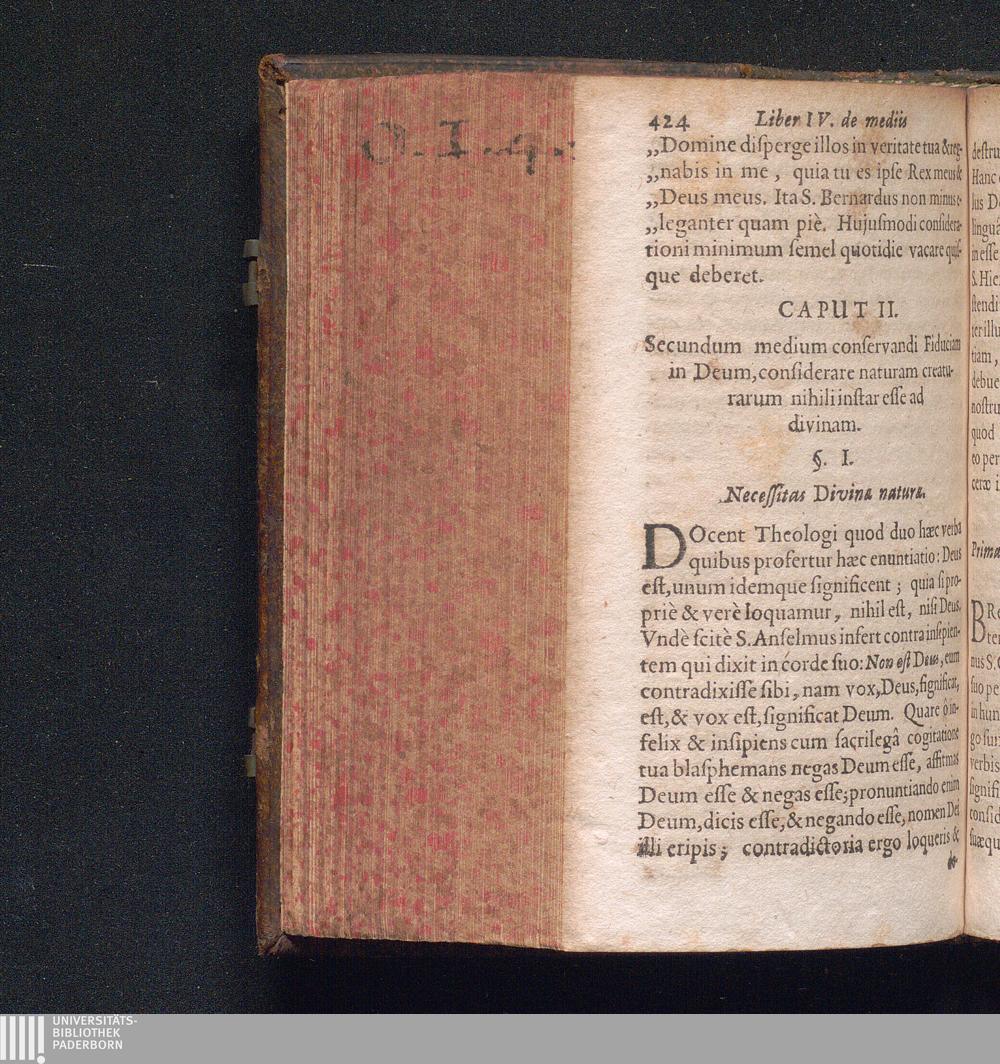 424 Liber IV. de mediis
„Domine disperge illos in veritate tua & reg-
„nabis in me, quia tu es ipse Rex meus &
„Deus meus. Ita S. Bernardus non minus e-
„leganter quam piè. Hujusmodi considera-
tioni minimum semel quotidie vacare quis-
que deberet.
CAPUT II.
Secundum medium conservandi Fiduciam
in Deum, considerare naturam creatu-
rarum nihili instar esse ad
divinam.
§. I.
Necessitas Divinæ naturæ.
DOcent Theologi quod duo hæc verba
quibus profertur hæc enuntiatio: Deus
est, unum idemque significent; quia si pro-
priè & verè loquamur, nihil est, nisi Deus.
Vndè scitè S. Anselmus infert contra insipien-
tem qui dixit in corde suo: Non est Deus, eum
contradixisse sibi, nam vox, Deus, significat,
est, & vox est, significat Deum. Quare ô in-
felix & insipiens cum sacrilegâ cogitatione
tua blasphemans negas Deum esse, affirmas
Deum esse & negas esse; pronuntiando enim
Deum, dicis esse, & negando esse, nomen Dei
illi eripis; contradictoria ergo loqueris &
de-
destru
Hanc
ius De
linguâ
in esse
S. Hie
stendi
ter illu
tiam,
debue
nostru
quod
eo per
ceræ i
Prima
BRe
ter
nus S.
suo pe
in hun
go sui
verbis
signifi
consid
suæqu
UNIVERSITÄTS-
BIBLIOTHEK
PADERBORN